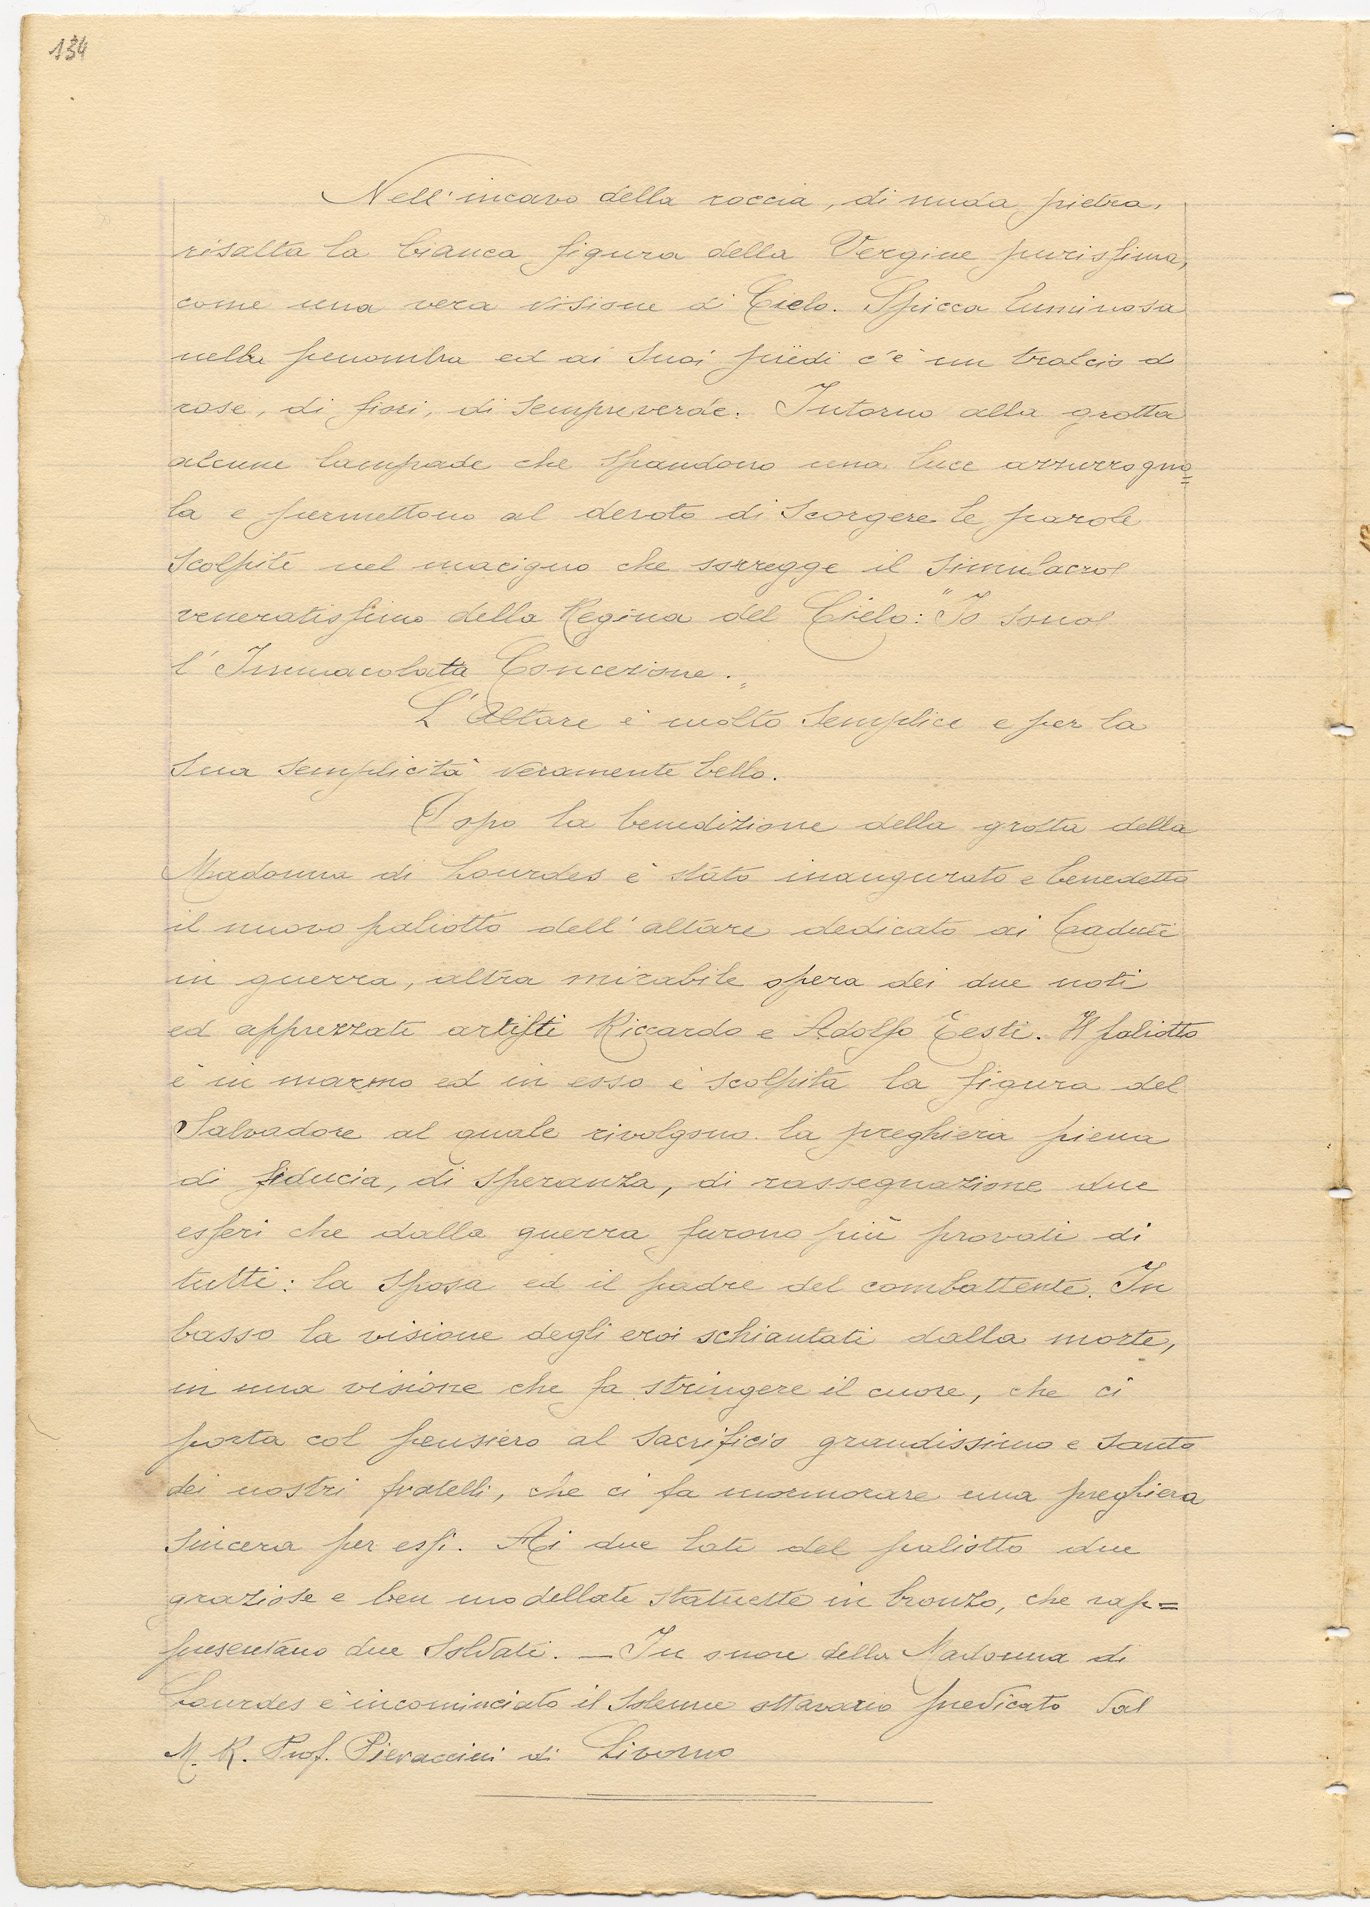 134
Nell'incavo della roccia, di nuda pietra,
risalta la bianca figura della Vergine purissima,
come una vera visione di Cielo. Spicca luminosa
nella penombra ed ai suoi piedi c'è un tralcio d
rose, di fiori, di sempreverde. Intorno alla grotta
alcune lampade che spandono una luce azzurrogno=
la e permettono al devoto di scorgere le parole
scolpite nel macigno che sorregge il simulacro
veneratissimo della Regina del Cielo: "Io sono
l'Immacolata Concezione."
L'Altare è molto semplice e per la
sua semplicità veramente bello.
Dopo la benedizione della grotta della
Madonna di Lourdes è stato inaugurato e benedetto
il nuovo paliotto dell'altare dedicato ai Caduti
in guerra, altra mirabile opera dei due noti
ed apprezzati artisti Riccardo e Adolfo Testi. Il paliotto
è in marmo ed in esso è scolpita la figura del
Salvadore al quale rivolgono la preghiera piena
di fiducia, di speranza, di rassegnazione due
esseri che dalla guerra furono più provati di
tutti: la sposa ed il padre del combattente. In
basso la visione degli eroi schiantati dalla morte,
in una visione che fa stringere il cuore, che ci
porta col pensiero al sacrificio grandissimo e santo
dei nostri fratelli, che ci fa mormorare una preghiera
sincera per essi. Ai due lati del paliotto due
graziose e ben modellate statuette in bronzo, che rap=
presentano due soldati. — In onore della Madonna di
Lourdes è incominciato il solenne ottavario predicato dal
M. R. Prof. Pieraccini di Livorno